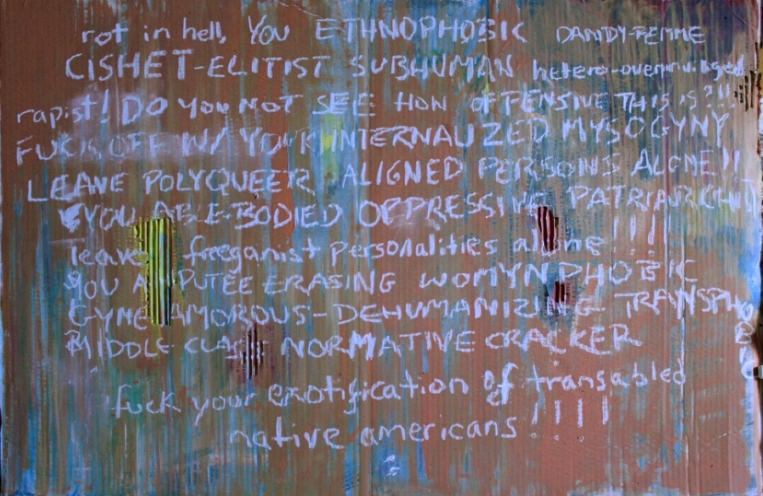 rot in hell, YOU ETHNOPHOBIC DANDY-FEMME
CISHET-ELITIST SUBHUMAN hetero-overprivileged
rapist! DO YOU NOT SEE HOW OFFENSIVE THIS IS?!!
FUCK OFF W/ YOUR INTERNALIZED MYSOGYNY
LEAVE POLYQUEER ALIGNED PERSONS ALONE!!
YOU ABLE-BODIED OPPRESSIVE PATRIARCH
leave freeganist personalities alone !!!
YOU AMPUTEE ERASING WOMYNPHOBIC
GYNEAMOROUS-DEHUMANIZING TRANSPHOBIC
MIDDLE CLASS NORMATIVE CRACKER
fuck your exotification of transabled
native americans!!!!!